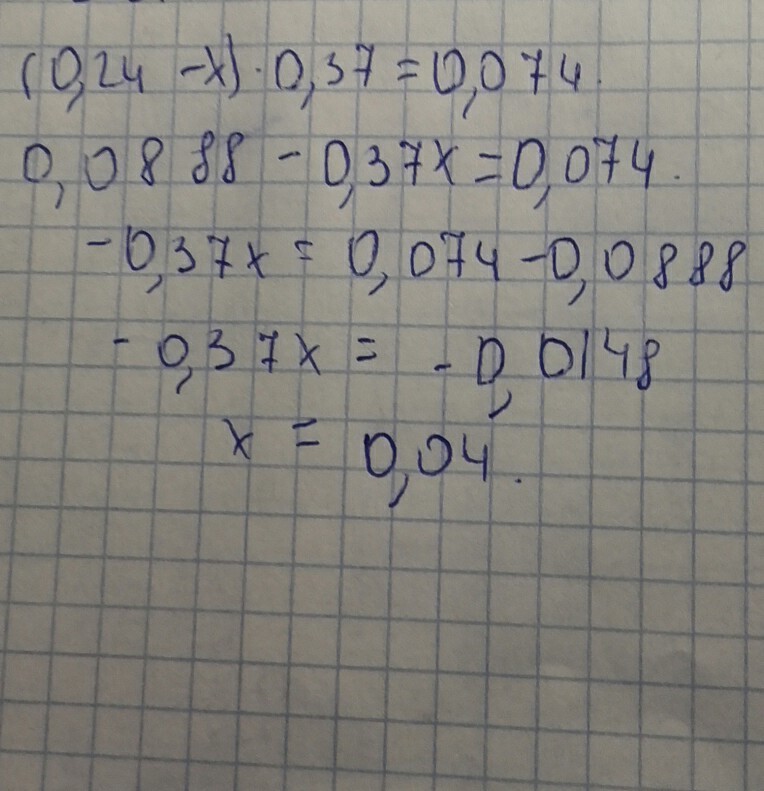 (0,24 -x)·0,37=0,074.
0,0888 - 0,37x=0,074.
-0,37x = 0,074-0,0888
- 0,37x = -0,0148
x = 0,04.